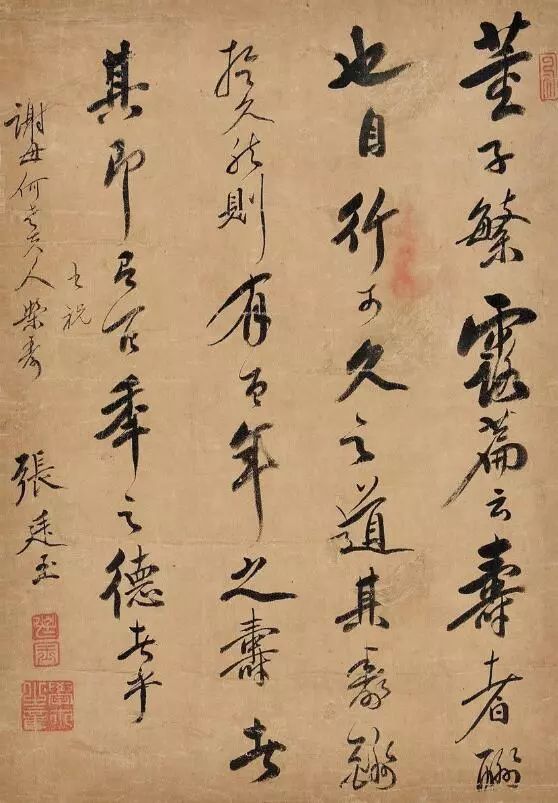 董子繁露篇云壽者酬
也自行可久之道其壽酬
於久然則有百年之壽者
其即有百年之德者乎
書祝
謝母何老夫人榮壽
張廷玉